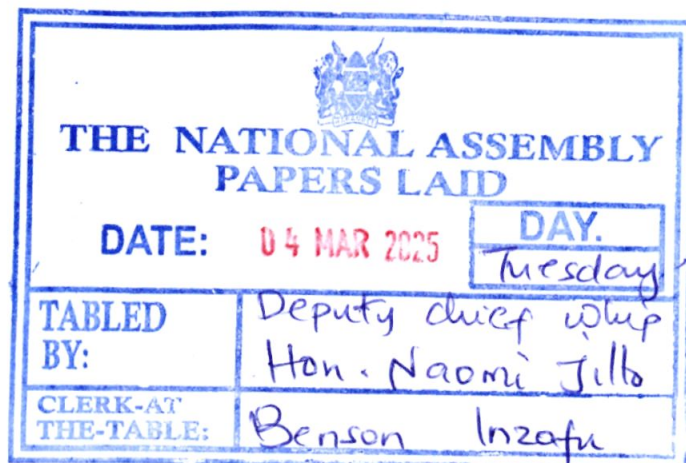 THE NATIONAL ASSEMBLY
PAPERS LAID
DATE: 04 MAR 2025
DAY.
Tuesday
TABLED BY:
Deputy chief whip
Hon. Naomi Jillo
CLERK-AT THE-TABLE:
Benson Inzofu